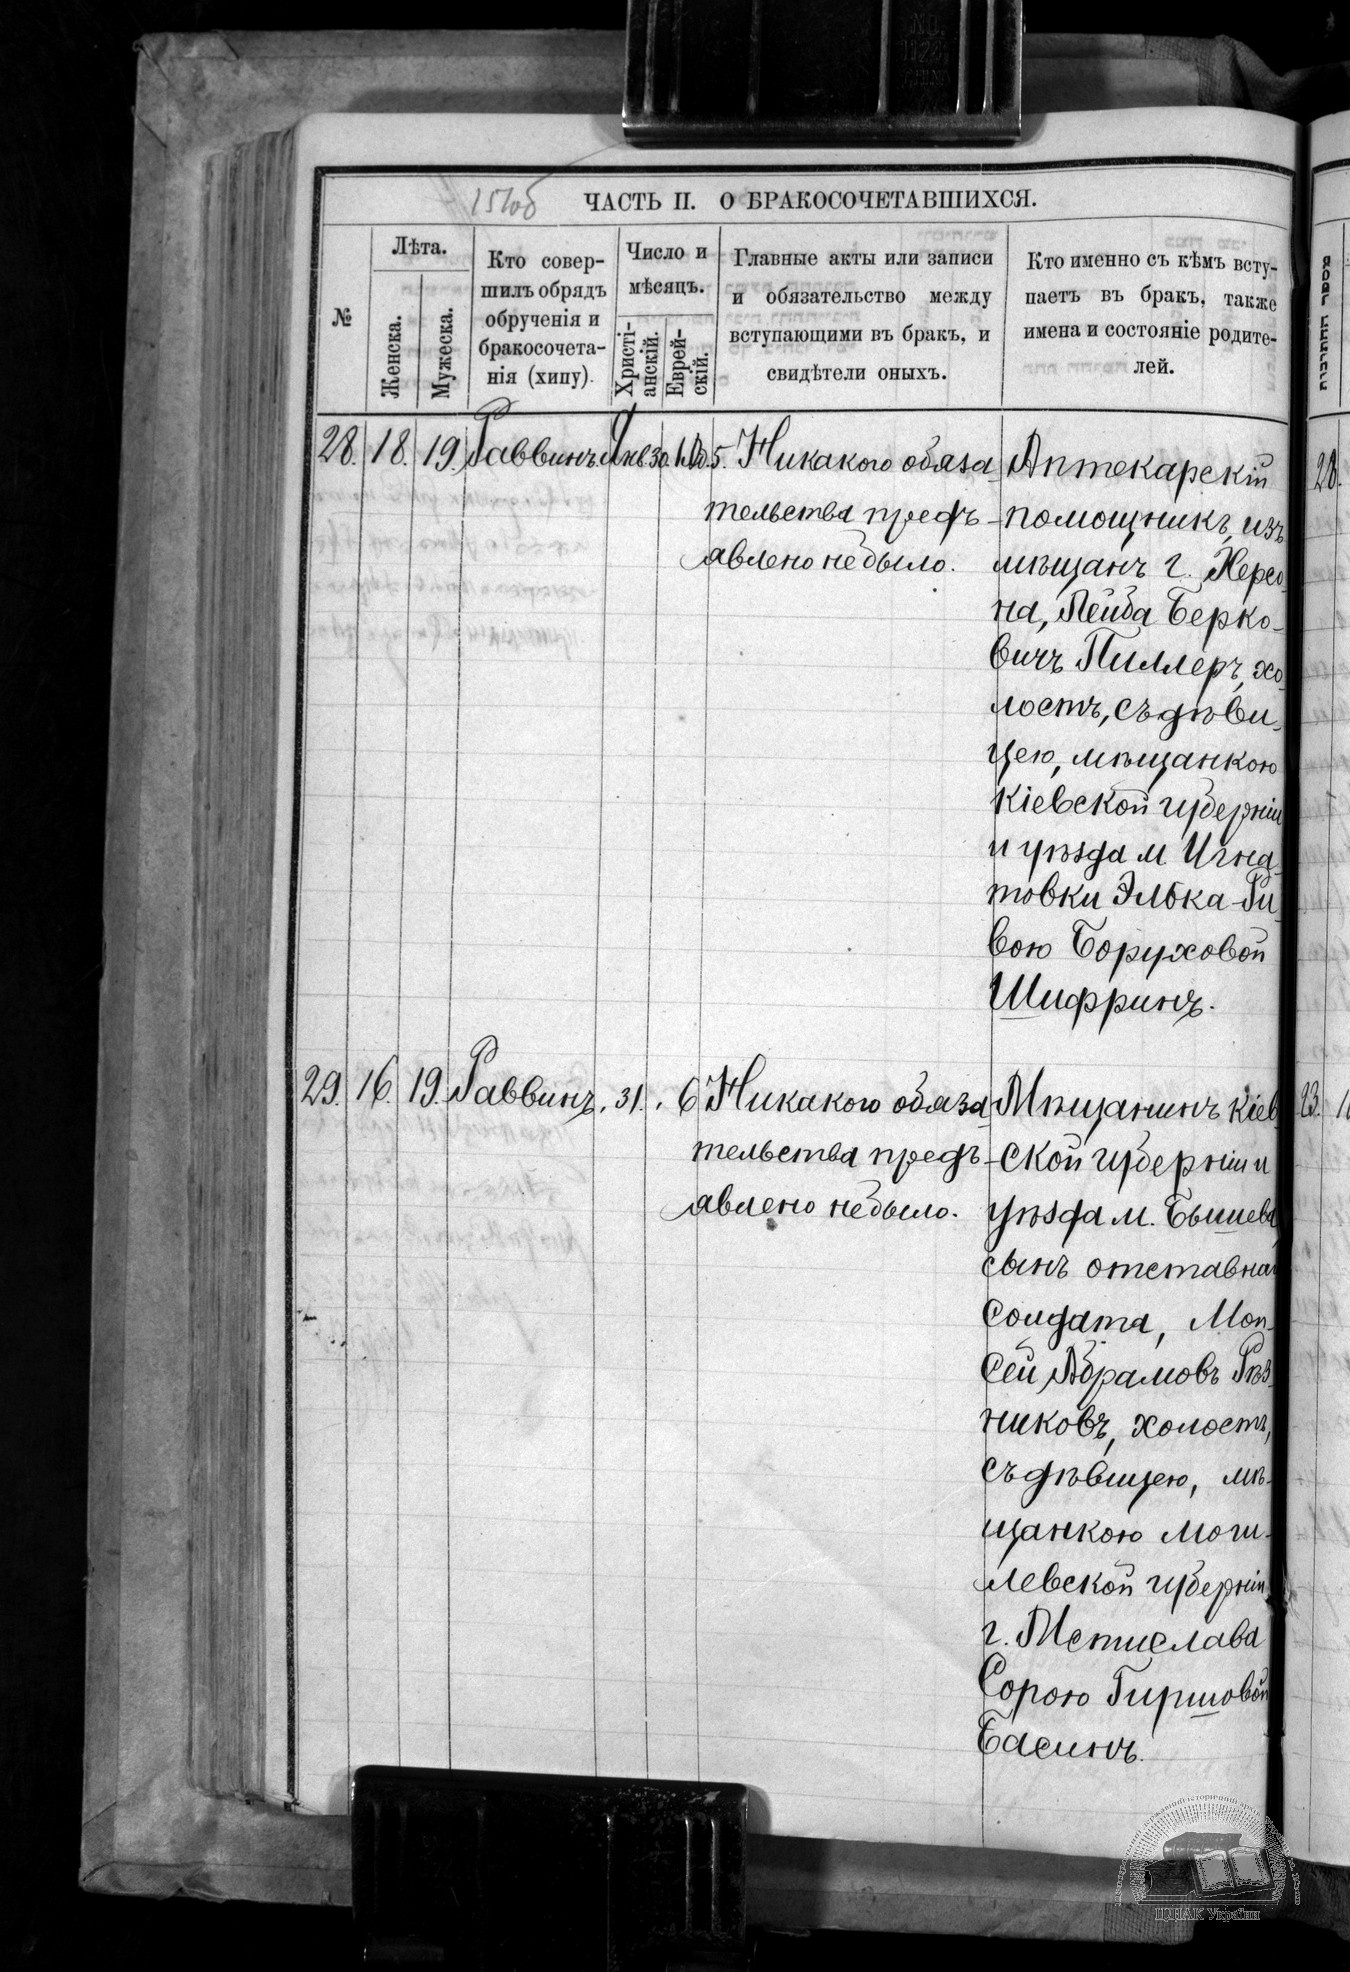 157об
ЧАСТЬ II. О БРАКОСОЧЕТАВШИХСЯ.
№
Лѣта.
Женска.
Мужеска.
Кто совер-
шилъ обрядъ
обрученія и
бракосочета-
нія (хипу).
Число и
мѣсяцъ.
Христі-
анскій.
Еврей-
скій.
Главные акты или записи
и обязательство между
вступающими въ бракъ, и
свидѣтели оныхъ.
Кто именно съ кѣмъ всту-
паетъ въ бракъ, также
имена и состояніе родите-
лей.
28. 18. 19. Раввинъ. Янв. 30. 5. Никакого обяза-
тельства предъ-
явлено не было.
Аптекарскій
помощникъ, изъ
мѣщанъ г. Херсо-
на, Лейба Берко-
вичъ Пиллеръ, хо-
лостъ, съ дѣви-
цею, мѣщанкою
Кіевской губерніи
и уѣзда м. Игна-
товки Элька-Ри-
вою Боруховой
Шифринъ.
29. 16. 19. Раввинъ. 31. 6 Никакого обяза-
тельства предъ-
явлено не было.
Мѣщанинъ Кіев-
ской губерніи и
уѣзда м. Бышева
сынъ отставнаго
солдата, Мои-
сей Абрамовъ Рѣз-
никовъ, холостъ,
съ дѣвицею, мѣ-
щанкою Моги-
левской губерніи
г. Мстислава
Сорою Гиршовой
Басинъ.
28.
ЦДІАК України